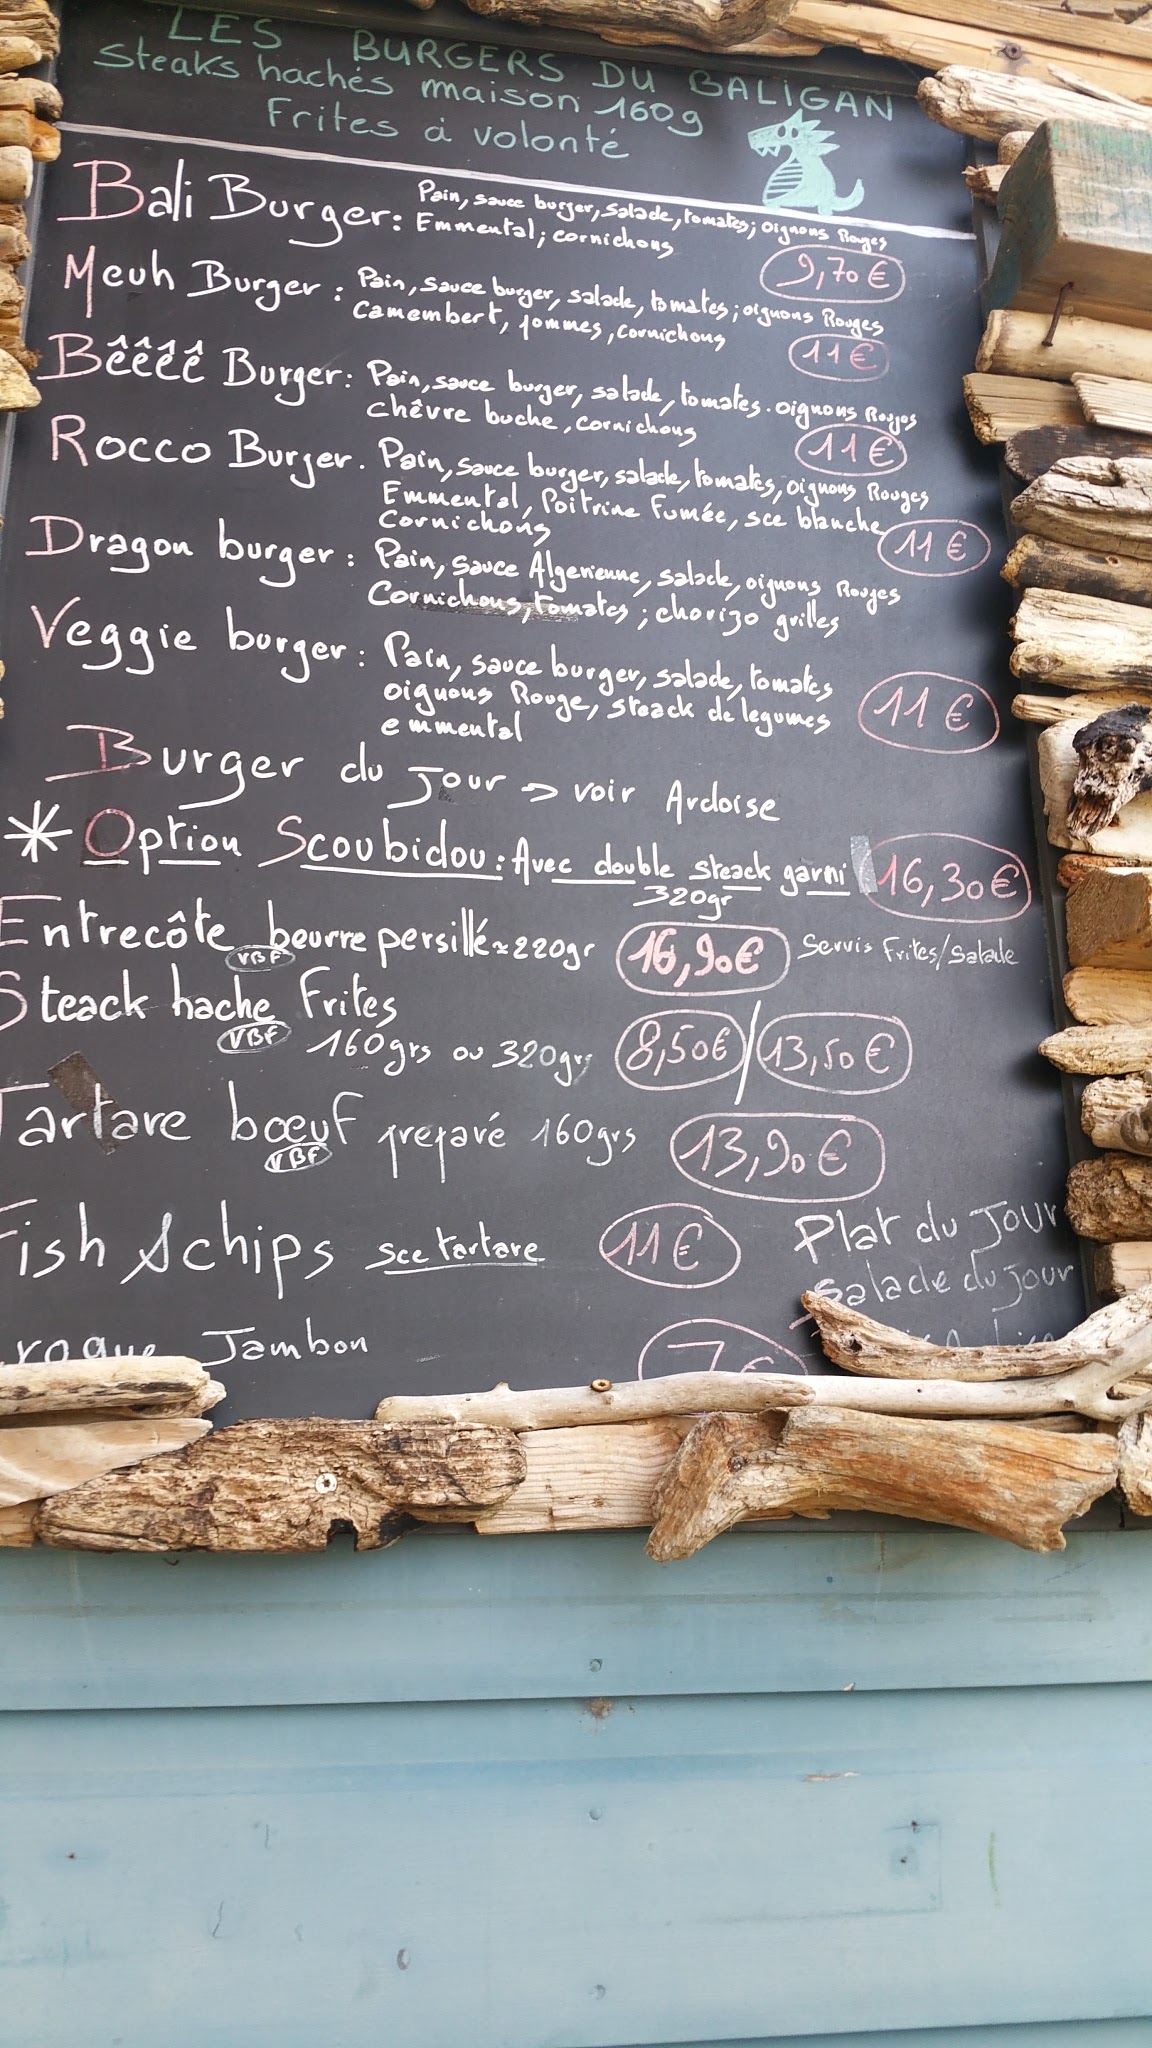 LES BURGERS DU BALIGAN
Steaks hachés maison 160g
Frites à volonté
Bali Burger: Pain, sauce burger, salade, tomates; oignons Rouges
Emmental; cornichons
9,70€
Meuh Burger: Pain, sauce burger, salade, tomates; oignons Rouges
Camembert, pommes, cornichons
11€
Bêêêê Burger: Pain, sauce burger, salade, tomates. oignons Rouges
chêvre buche, cornichons
11€
Rocco Burger. Pain, sauce burger, salade, tomates, oignons Rouges
Emmental, Poitrine Fumée, sce blanche
Cornichons
11€
Dragon burger: Pain, sauce Algerienne, salade, oignons Rouges
Cornichons, tomates; chorizo grilles
Veggie burger: Pain, sauce burger, salade, tomates
oignons Rouge, steack de legumes
emmental
11€
Burger du jour → voir Ardoise
* Option Scoubidou: Avec double steack garni 16,30€
320gr
Entrecôte beurre persillé ≈ 220gr 16,90€ Servis Frites/Salade
VBF
Steack hache Frites
VBF 160grs ou 320grs 8,50€/13,50€
Tartare bœuf preparé 160grs 13,90€
VBF
Fish & chips sce tartare 11€
Plat du JOUR
Salade du jour
Jambon 7€